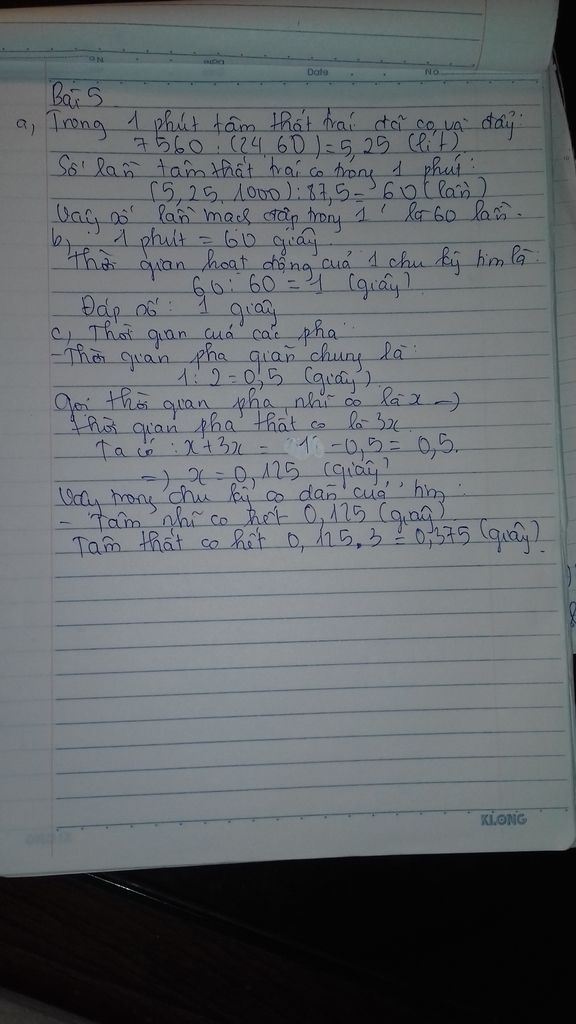 Date No
Bài 5
a, Trong 1 phút tâm thất trái đã co và đẩy:
7560 : (24.60) = 5,25 (lít)
Số lần tâm thất trái co trong 1 phút:
(5,25.1000) : 87,5 = 60 (lần)
Vậy số lần mạch đập trong 1' là 60 lần.
b, 1 phút = 60 giây
Thời gian hoạt động của 1 chu kỳ tim là:
60 : 60 = 1 (giây)
Đáp số: 1 giây
c, Thời gian của các pha:
- Thời gian pha giãn chung là:
1 : 2 = 0,5 (giây)
Gọi thời gian pha nhĩ co là x →
thời gian pha thất co là 3x
Ta có: x + 3x = 1 - 0,5 = 0,5.
=> x = 0,125 (giây)
Vậy trong chu kỳ co dãn của tim:
- Tâm nhĩ co hết 0,125 (giây)
Tâm thất co hết 0,125.3 = 0,375 (giây)
KLONG